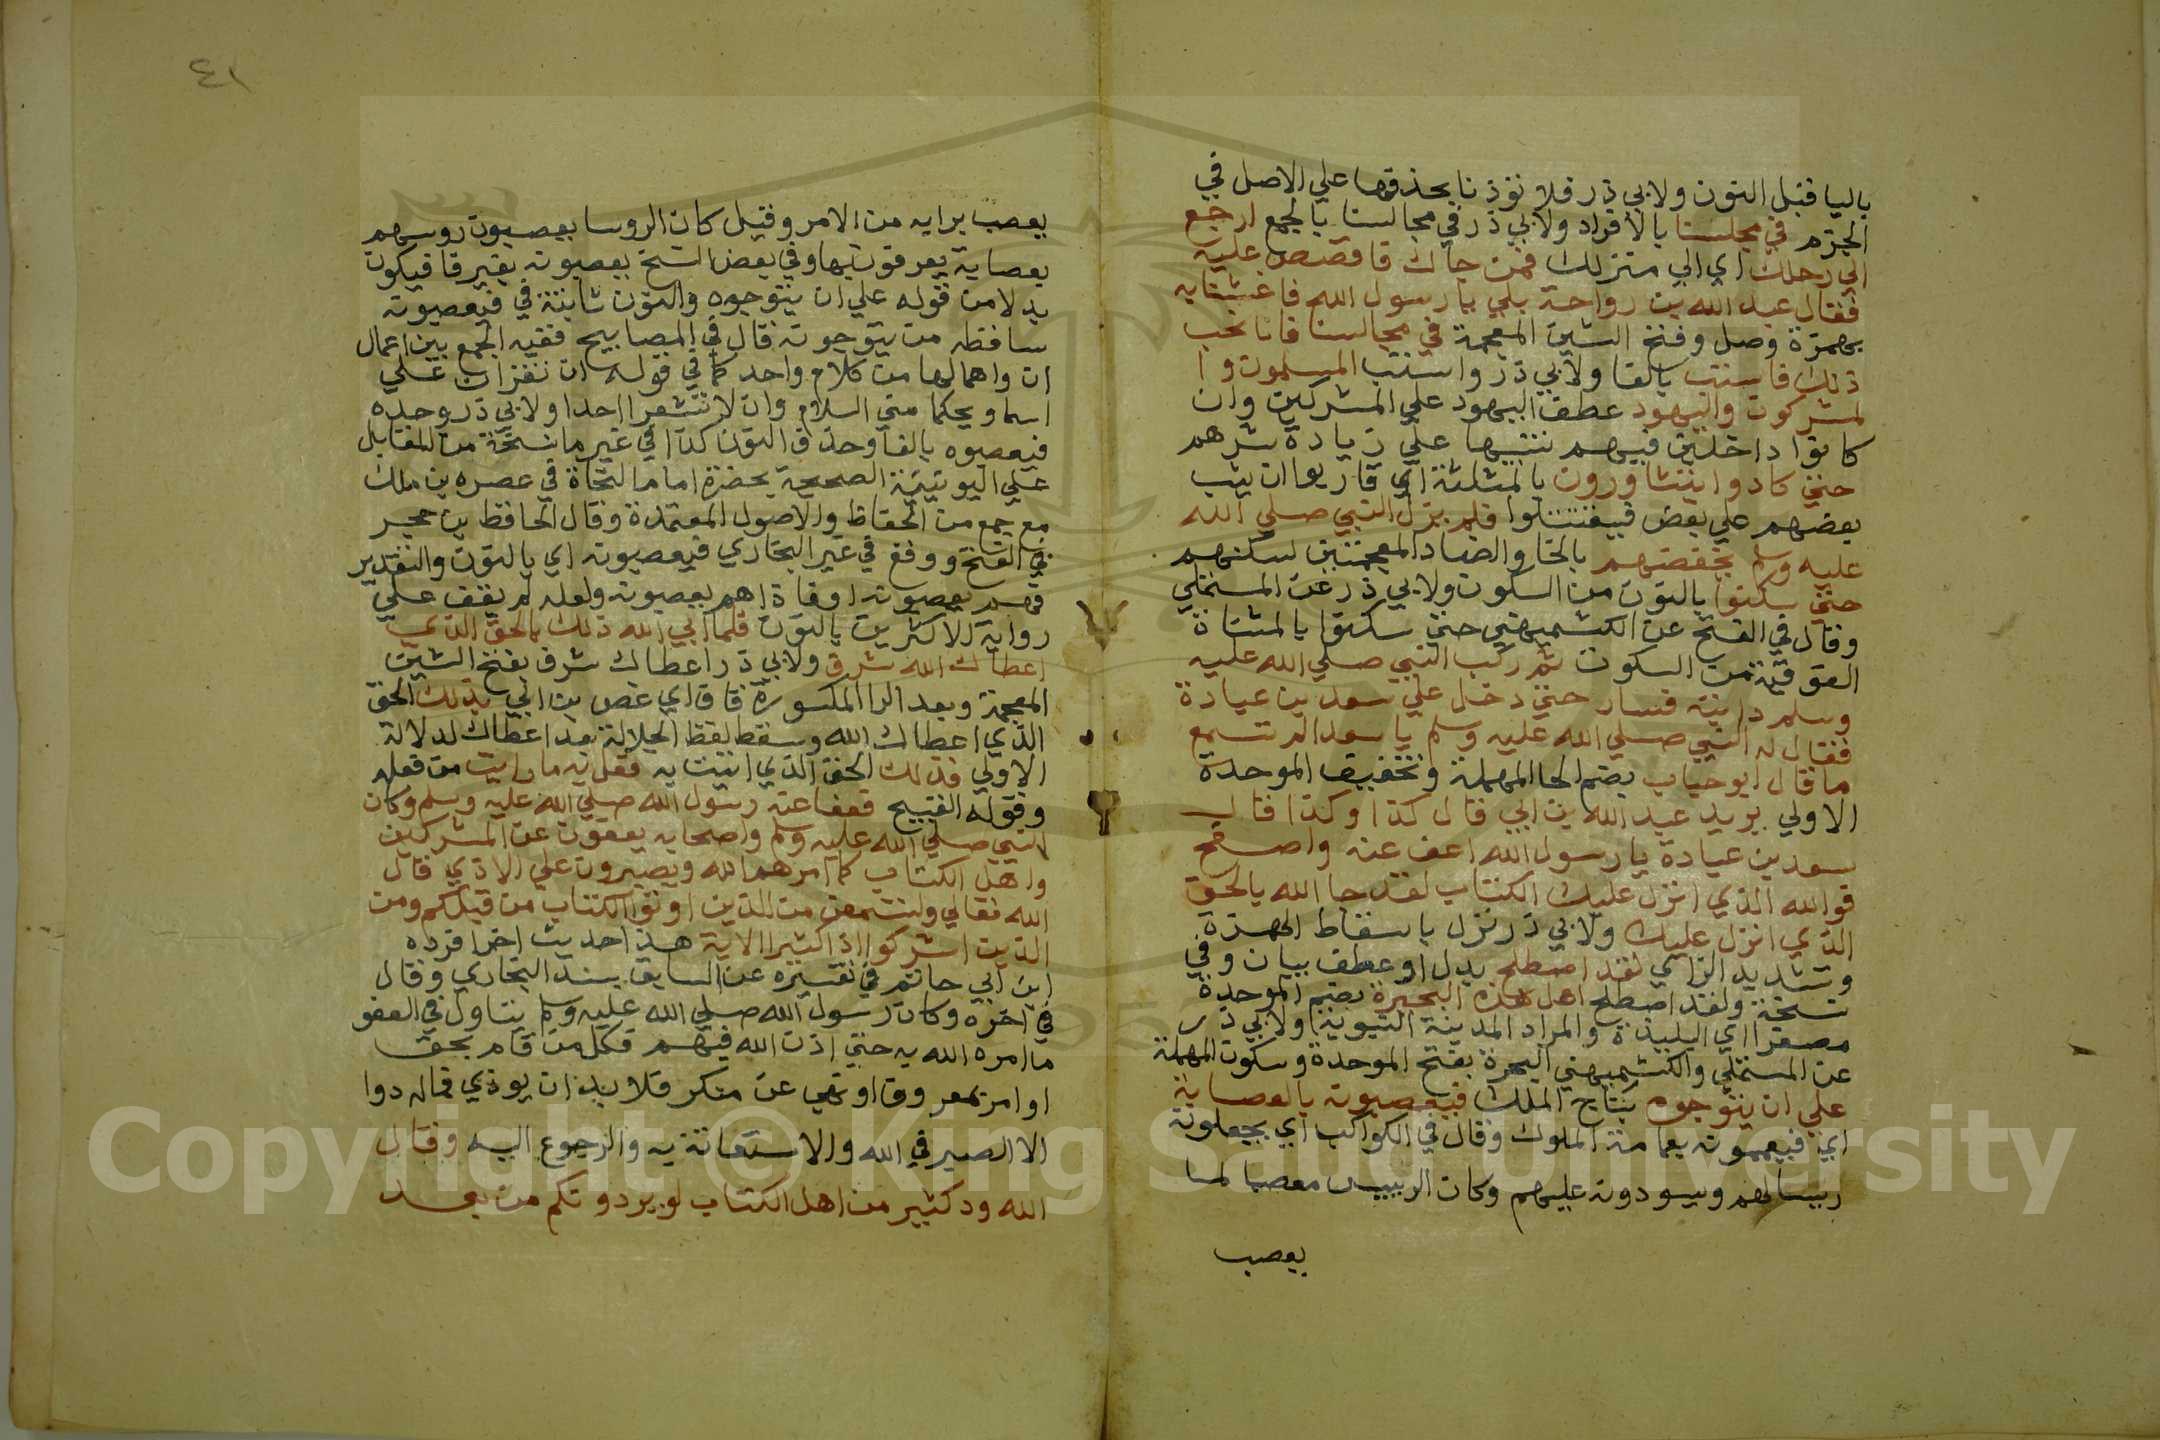 باليا قبل النون ولابي ذر فلا توذنا بحذفها علي الاصل في
الجزم في مجلسنا بالافراد ولابي ذر في مجالسنا بالجمع ارجع
الي رحلك اي الي منزلك فمن جاك فاقصص عليه
فقال عبد الله بن رواحة بلي يا رسول الله فاغشنا به
بهمزة وصل وفتح الشين المعجمة في مجالسنا فانا نحب
ذلك فاستب بالفا ولابي ذر واستب المسلمون وا
لمشركون واليهود عطف اليهود علي المشركين وان
كانوا داخلين فيهم تنبيها علي زيادة شرهم
حتي كادوا يتثاورون بالمثلثة اي قاربوا ان يثب
بعضهم علي بعض فيقتتلوا فلم يزل النبي صلي الله
عليه وسلم يخفضهم بالخا والضاد المعجمتين يسكتهم
حتي سكنوا بالنون من السكون ولابي ذر عن المستملي
وقال في الفتح عن الكشميهني حتي سكتوا بالمثناة
الفوقية من السكوت ثم ركب النبي صلي الله عليه
وسلم دابته فسار حتي دخل علي سعد بن عبادة
فقال له النبي صلي الله عليه وسلم يا سعد الم تسمع
ما قال ابو حباب بضم الحا المهملة وتخفيف الموحدة
الاولي يريد عبد الله بن ابي قال كذا وكذا قال
سعد بن عبادة يا رسول الله اعف عنه واصفح
فوالله الذي انزل عليك الكتاب لقد جا الله بالحق
الذي انزل عليك ولابي ذر نزل باسقاط الهمزة
وتشديد الزاي لقد اصطلح بدل او عطف بيان وفي
نسخة ولقد اصطلح اهل هذه البحيرة بضم الموحدة
مصغرا اي البليدة والمراد المدينة النبوية ولابي ذر
عن المستملي والكشميهني البحرة بفتح الموحدة وسكون المهملة
علي ان يتوجوه بتاج الملك فيعصبونه بالعصابة
اي فيعممونه بعمامة الملوك وقال في الكواكب اي يجعلونه
رييسا لهم ويسودونه عليهم وكان الرييس معصبا لما
يعصب
٤١
يعصب برايه من الامر وقيل كان الروسا يعصبون روسهم
بعصابة يعرفون بها وفي بعض النسخ يعصبونه بغير فا فيكون
بدلا من قوله علي ان يتوجوه والنون ثابتة في فيعصبونه
ساقطه من يتوجوه قال في المصابيح ففيه الجمع بين اعمال
ان واهمالها من كلام واحد كما في قوله ان تقران علي
اسما ويحكما مني السلام وان لا تشعرا احدا ولابي ذر وحده
فيعصبوه بالفا وحذف النون كذا في غير ما نسخة من المقابل
علي اليونينية الصحيحة بحضرة امام النحاة في عصره بن ملك
مع جمع من الحفاظ والاصول المعتمدة وقال الحافظ بن حجر
في الفتح ووقع في غير البخاري فيعصبونه اي بالنون والتقدير
فهم يعصبونه او فاذا هم يعصبونه ولعله لم يقف علي
رواية الاكثرين بالنون فلما ابي الله ذلك بالحق الذي
اعطاك الله شرق ولابي ذر اعطاك شرق بفتح الشين
المعجمة وبعد الرا المكسورة قاف اي غص بن ابي بذلك الحق
الذي اعطاك الله وسقط لفظ الجلالة بعد اعطاك لدلالة
الاولي فذلك الحق الذي اتيت به فعل به ما رايت من فعله
وقوله القبيح فعفا عنه رسول الله صلي الله عليه وسلم وكان
النبي صلي الله عليه وسلم واصحابه يعفون عن المشركين
واهل الكتاب كما امرهم الله ويصبرون علي الاذي قال
الله تعالي ولتسمعن من الذين اوتوا الكتاب من قبلكم ومن
الذين اشركوا اذا كثيرا الاية هذا حديث اخر افرده
ابن ابي حاتم في تفسيره عن السابق بسند البخاري وقال
في اخره وكان رسول الله صلي الله عليه وسلم يتاول في العفو
ما امره الله به حتي اذن الله فيهم فكل من قام بحق
او امر بمعروف او نهي عن منكر فلا بد ان يوذي فما له دوا
الا الصبر في الله والاستعانة به والرجوع اليه وقال
الله ود كثير من اهل الكتاب لو يردونكم من بعد
Copyright © King Saud University